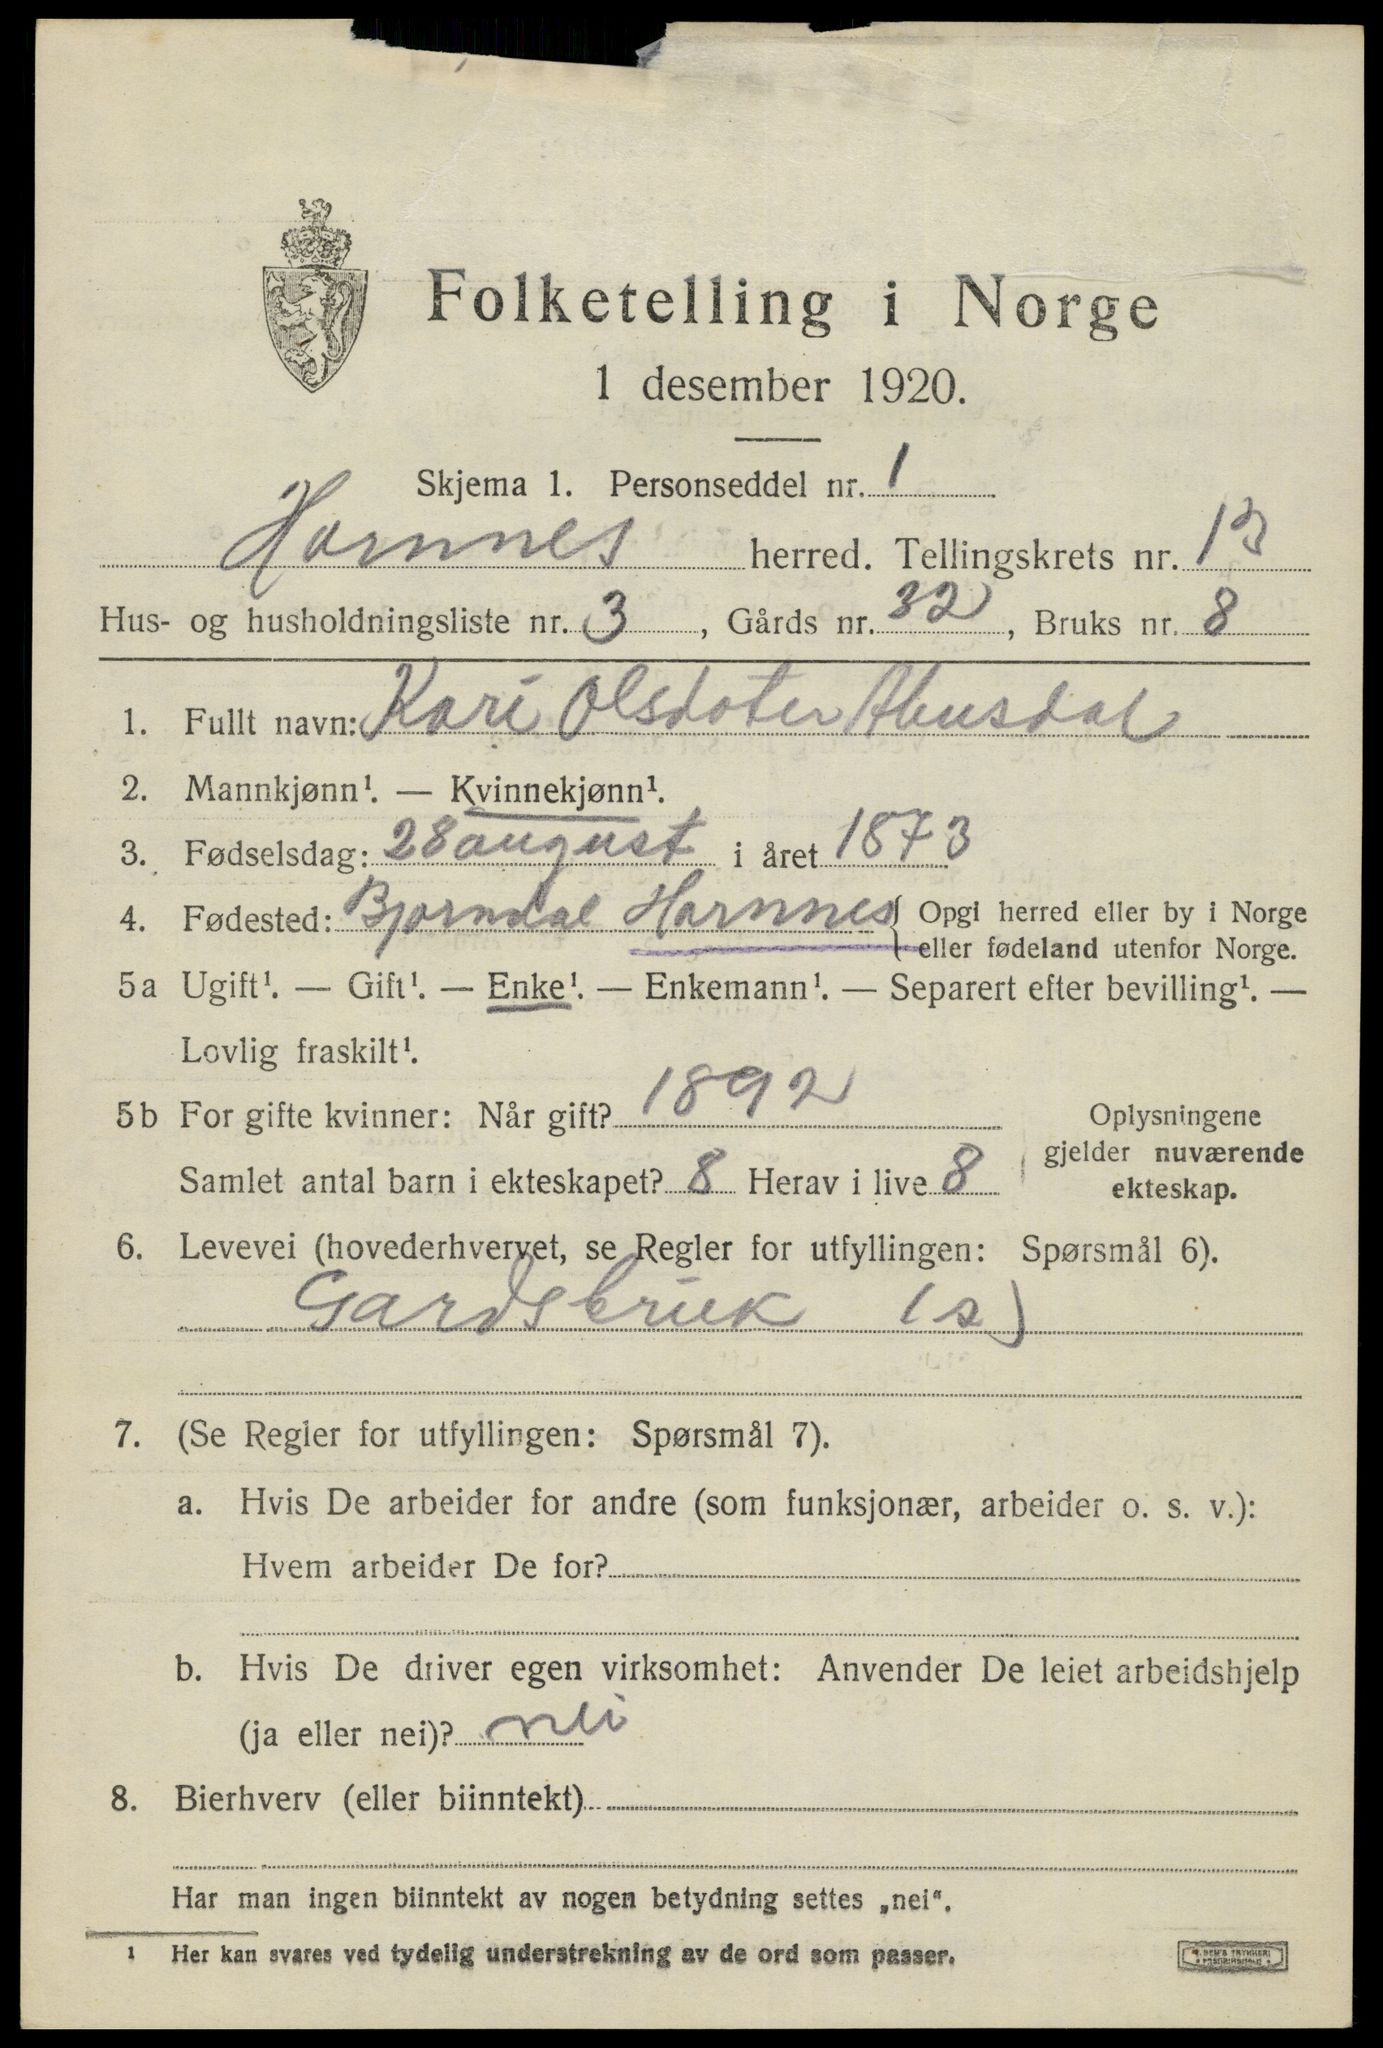 Folketelling i Norge
1 desember 1920.
Skjema 1. Personseddel nr. 1
Hornnes herred. Tellingskrets nr. 13
Hus- og husholdningsliste nr. 3, Gårds nr. 32, Bruks nr. 8
1. Fullt navn: Kari Olsdoter Abusdal
2. Mannkjønn¹. — Kvinnekjønn¹.
3. Fødselsdag: 28 august i året 1873
4. Fødested: Bjorndal Hornnes { Opgi herred eller by i Norge
eller fødeland utenfor Norge.
5a Ugift¹. — Gift¹. — Enke¹. — Enkemann¹. — Separert efter bevilling¹. —
Lovlig fraskilt¹.
5b For gifte kvinner: Når gift? 1892
Samlet antal barn i ekteskapet? 8 Herav i live 8
Oplysningene
gjelder nuværende
ekteskap.
6. Levevei (hovederhvervet, se Regler for utfyllingen: Spørsmål 6).
Gardsbruk (s)
7. (Se Regler for utfyllingen: Spørsmål 7).
a. Hvis De arbeider for andre (som funksjonær, arbeider o. s. v.):
Hvem arbeider De for?
b. Hvis De driver egen virksomhet: Anvender De leiet arbeidshjelp
(ja eller nei)? nei
8. Bierhverv (eller biinntekt)
Har man ingen biinntekt av nogen betydning settes „nei“.
¹ Her kan svares ved tydelig understrekning av de ord som passer.